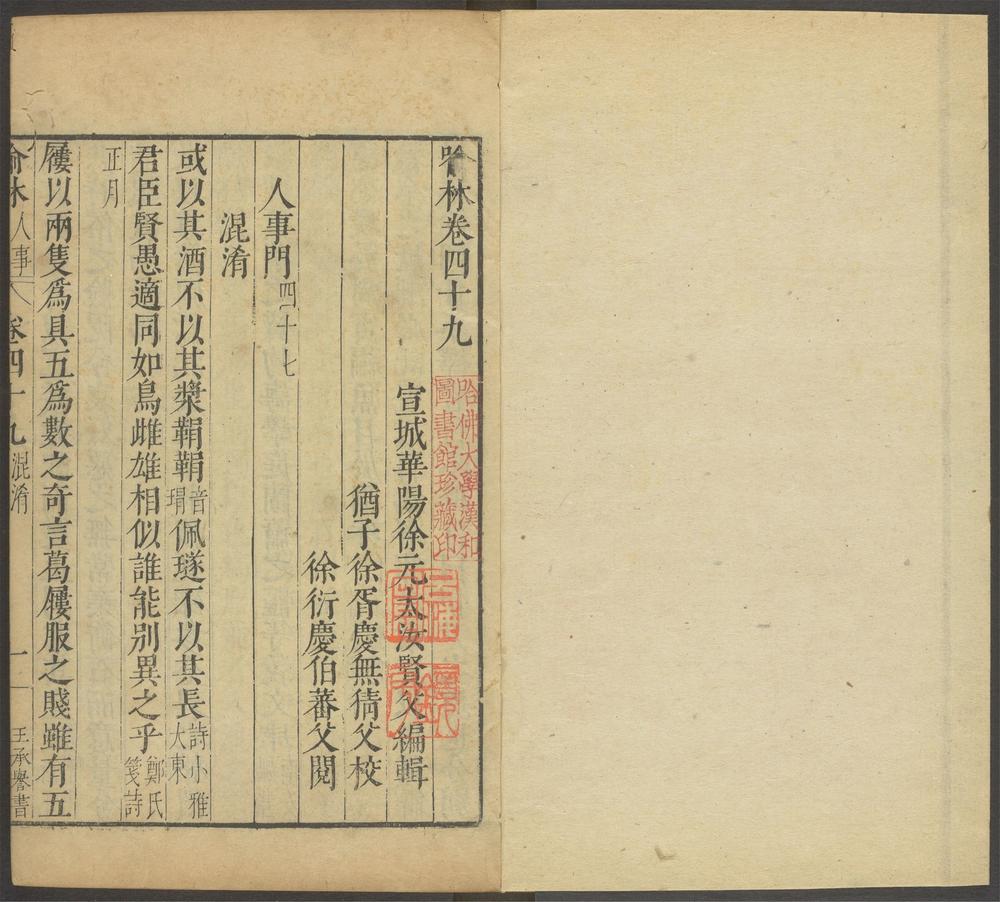 喻林卷四十九
哈佛大學漢和
圖書館珍藏印
宣城華陽徐元太汝賢父編輯
猶子徐胥慶無猜父校
徐衍慶伯蕃父閱
人事門四十七
混淆
或以其酒不以其漿鞙鞙音琄佩璲不以其長詩小雅大東
君臣賢愚適同如鳥雌雄相似誰能别異之乎鄭氏箋詩
正月
屨以兩隻爲具五爲數之奇言葛屨服之賤雖有五
喻林人事 卷四十九混淆 一 王承譽書